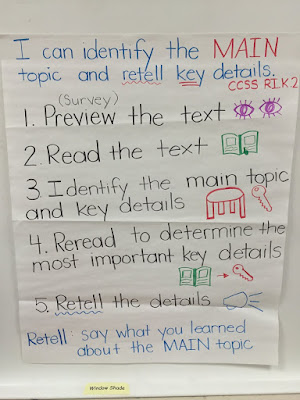 I can identify the MAIN
topic and retell key details.
CCSS RI.K.2
(Survey)
1. Preview the text
2. Read the text
3. Identify the main topic
and key details
4. Reread to determine the
most important key details
5. Retell the details
Retell: say what you learned
about the MAIN topic
Window Shade